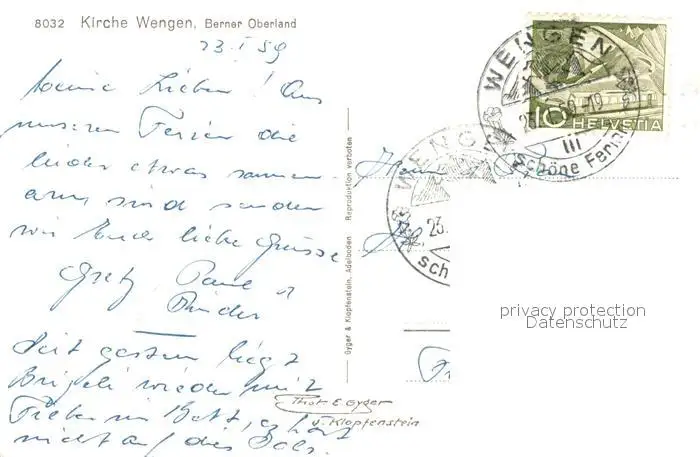 8032 Kirche Wengen, Berner Oberland
23. I 59
Meine Lieben! Aus
unseren Ferien die
leider etwas sonnen-
arm sind senden
wir Euch liebe Grüsse
Paul
Kinder
Seit gestern liegt
wieder mit
Fieber im Bett, es hört
nicht auf
Gyger & Klopfenstein, Adelboden Reproduktion verboten
Phot. E. Gyger
u. Klopfenstein
WENGEN
23.
sch
WENGEN
III
schöne Ferien
10 HELVETIA
privacy protection
Datenschutz